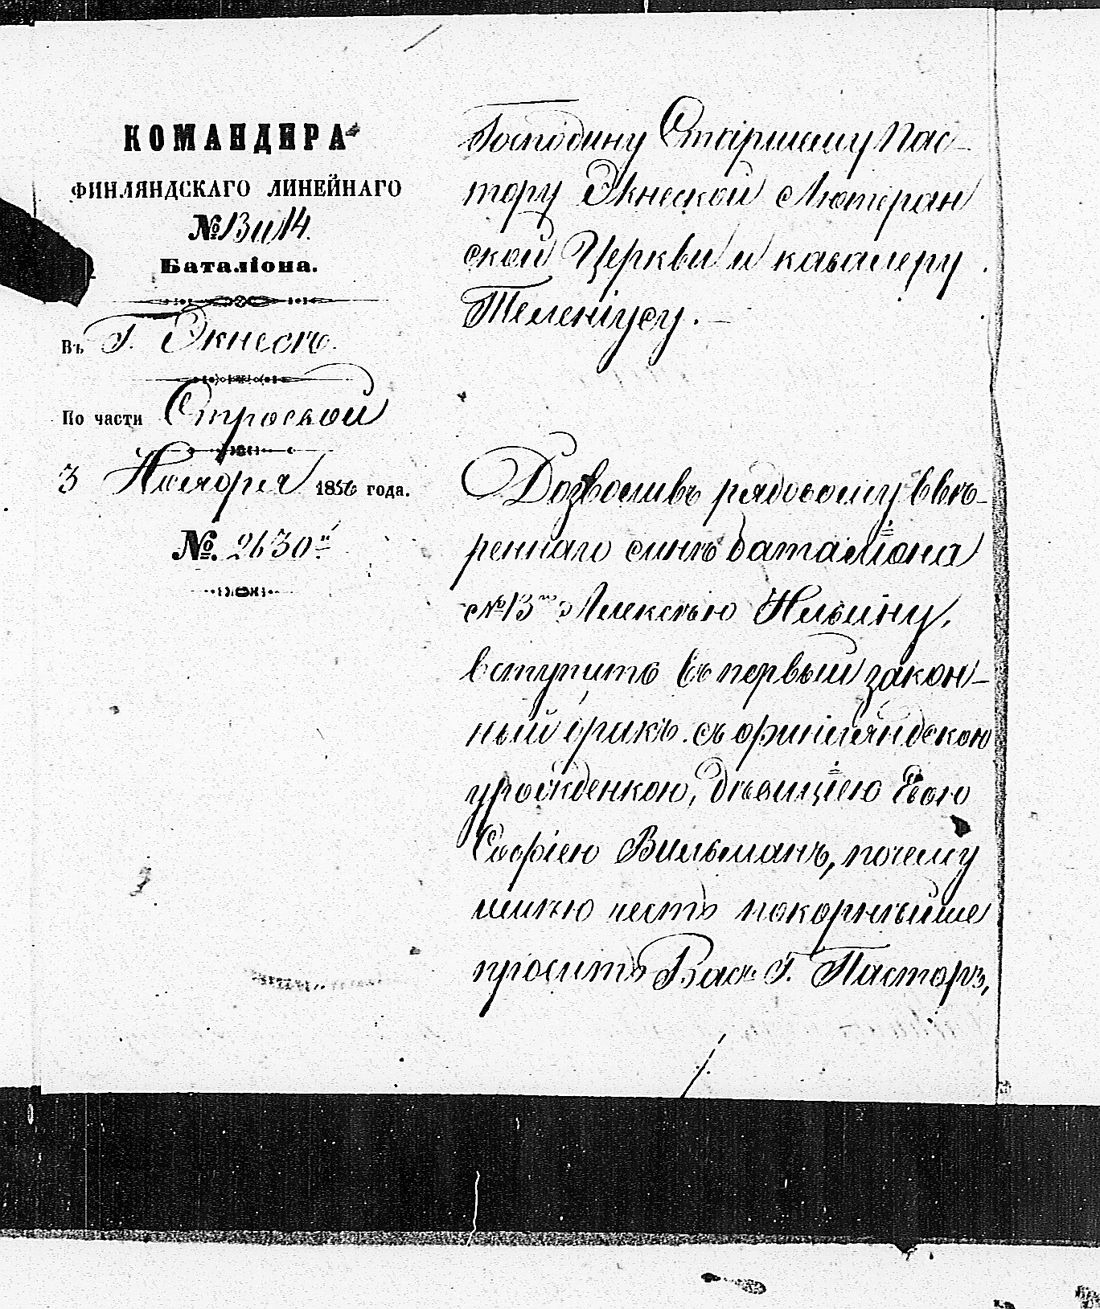 КОМАНДИРА
ФИНЛЯНДСКАГО ЛИНЕЙНАГО
№ 13 и 14.
Баталіона.
Въ Г. Экнесъ.
По части Строевой
3 Ноября 1856 года.
№. 2630
Господину Старшему Пас-
тору Экнеской Лютеран
ской Церкви и кавалеру
Теленіусу.
Дозволивъ рядовому ввѣ-
реннаго мнѣ баталіона
№ 13 Алексѣю Ильину,
вступить въ первый закон-
ный бракъ съ финляндскою
уроженкою, дѣвицею Евою
Софіею Вильманъ, почему
имѣю честь покорнѣйше
просить Васъ Г. Пасторъ,